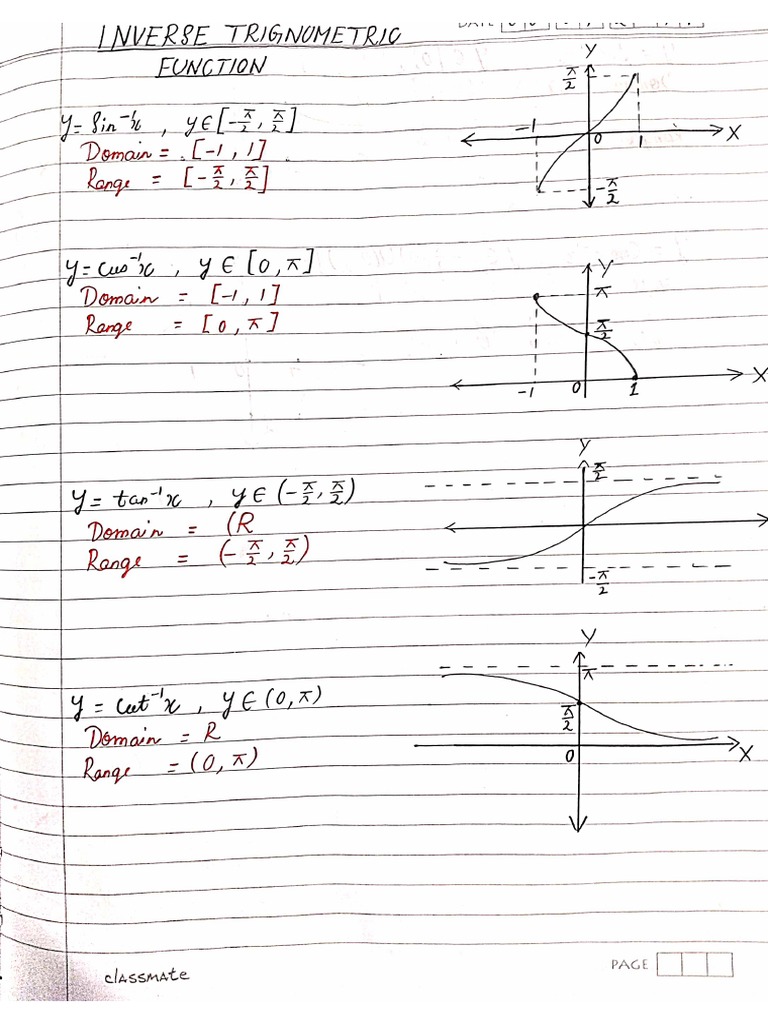 INVERSE TRIGNOMETRIC
FUNCTION
DATE
y = sin⁻¹x , y ∈ [-π/2, π/2]
Domain = [-1, 1]
Range = [-π/2, π/2]
Y
π/2
-1 0 1 X
-π/2
y = cos⁻¹x , y ∈ [0, π]
Domain = [-1, 1]
Range = [0, π]
Y
π
π/2
-1 0 1 X
y = tan⁻¹x , y ∈ (-π/2, π/2)
Domain = R
Range = (-π/2, π/2)
Y
π/2
-π/2
y = cot⁻¹x , y ∈ (0, π)
Domain = R
Range = (0, π)
Y
π
π/2
0 X
classmate
PAGE